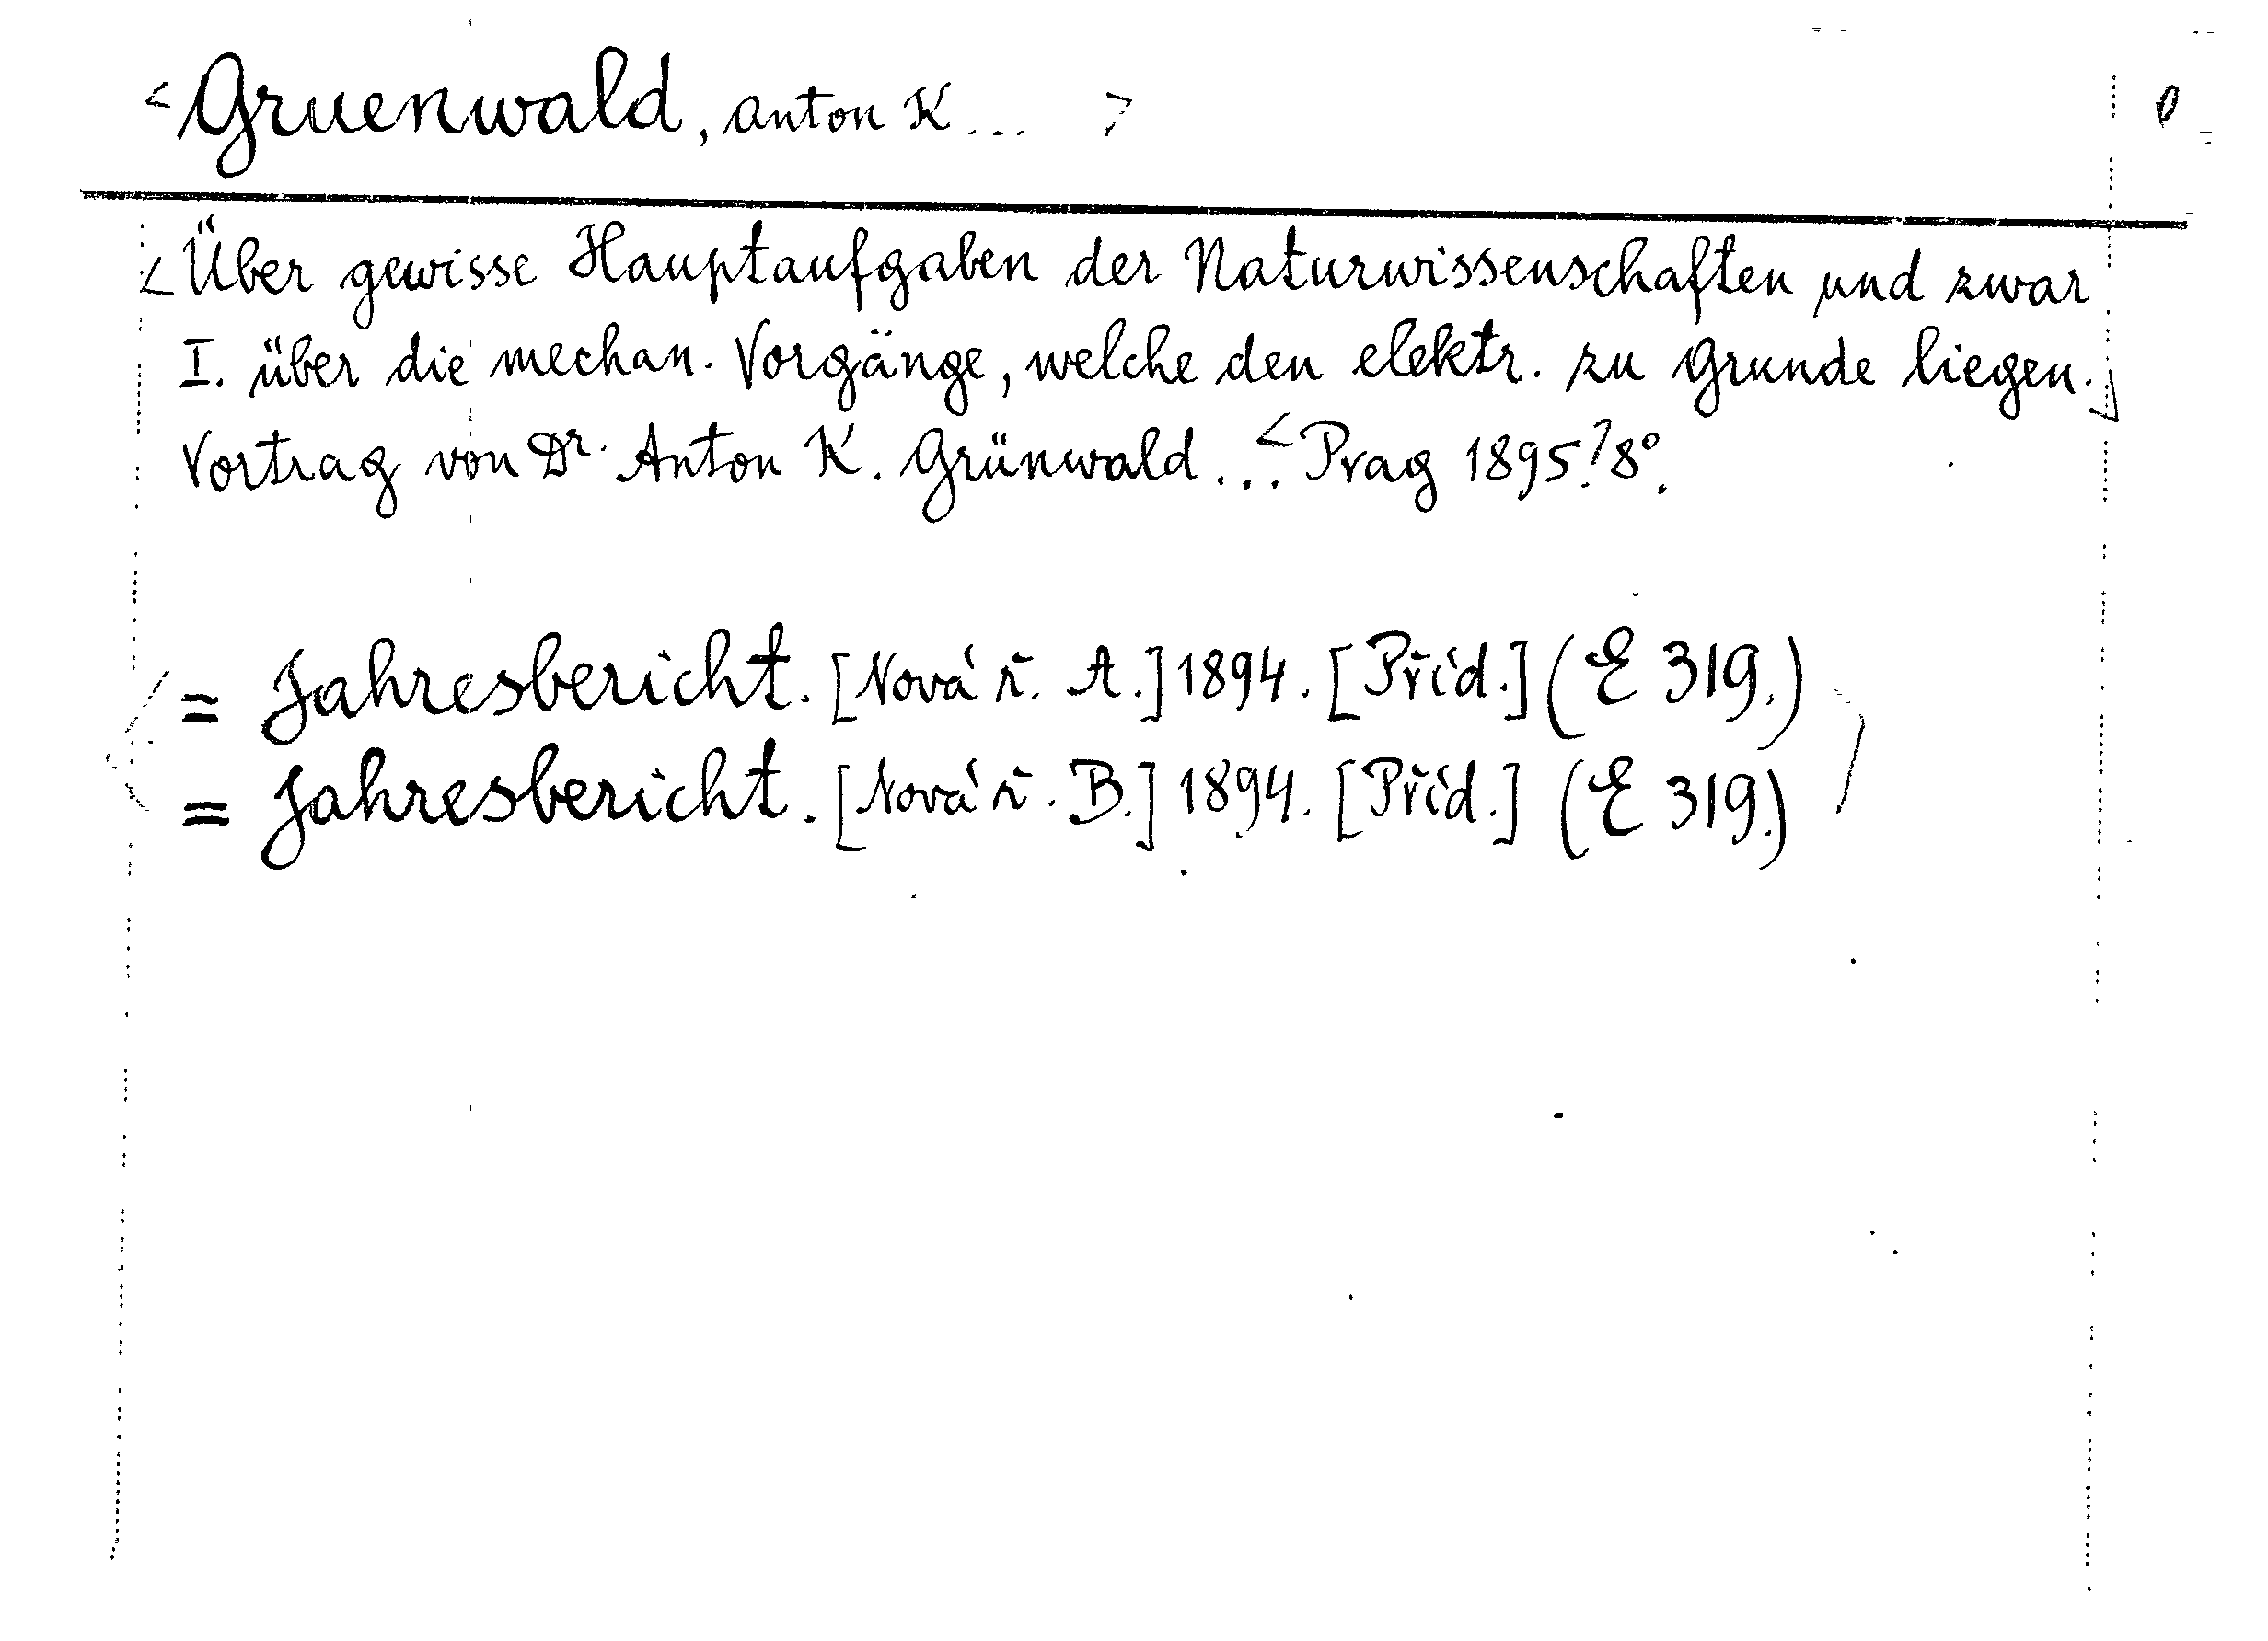 <Gruenwald, Anton K... > 0
<Über gewisse Hauptaufgaben der Naturwissenschaften und zwar
I. über die mechan. Vorgänge, welche den elektr. zu Grunde liegen.
Vortrag von Dr. Anton K. Grünwald...<Prag 1895?8°.
= Jahresbericht. [Nová ř. A.] 1894. [Příd.] (E 319.)
= Jahresbericht. [Nová ř. B.] 1894. [Příd.] (E 319.)